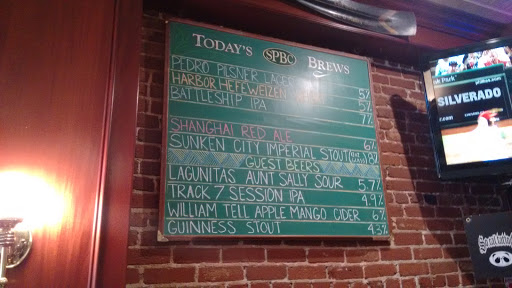 TODAY'S SPBC BREWS
PEDRO PILSNER LAGER 5%
HARBOR HEFEWEIZEN 5%
BATTLESHIP IPA 7%
SHANGHAI RED ALE 6%
SUNKEN CITY IMPERIAL STOUT
GUEST BEERS
LAGUNITAS AUNT SALLY SOUR 5.7%
TRACK 7 SESSION IPA 4.9%
WILLIAM TELL APPLE MANGO CIDER 6%
GUINNESS STOUT 4.3%
Park
SILVERADO